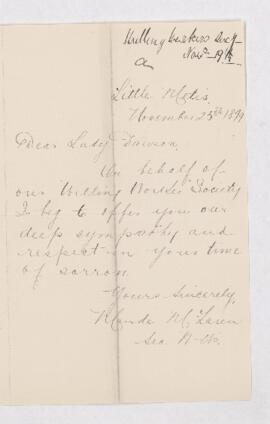 Willing Workers Socy
Little Metis,
November 25th 1899
Dear Lady Dawson,
On behalf of
our Willing Workers Society
I beg to offer you our
deep sympathy and
respect in your time
of sorrow
Yours Sincerely,
McLaren
Sec